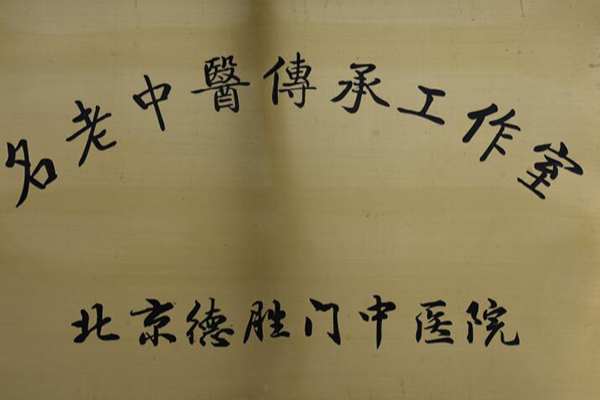 名老中醫傳承工作室
北京德胜门中医院